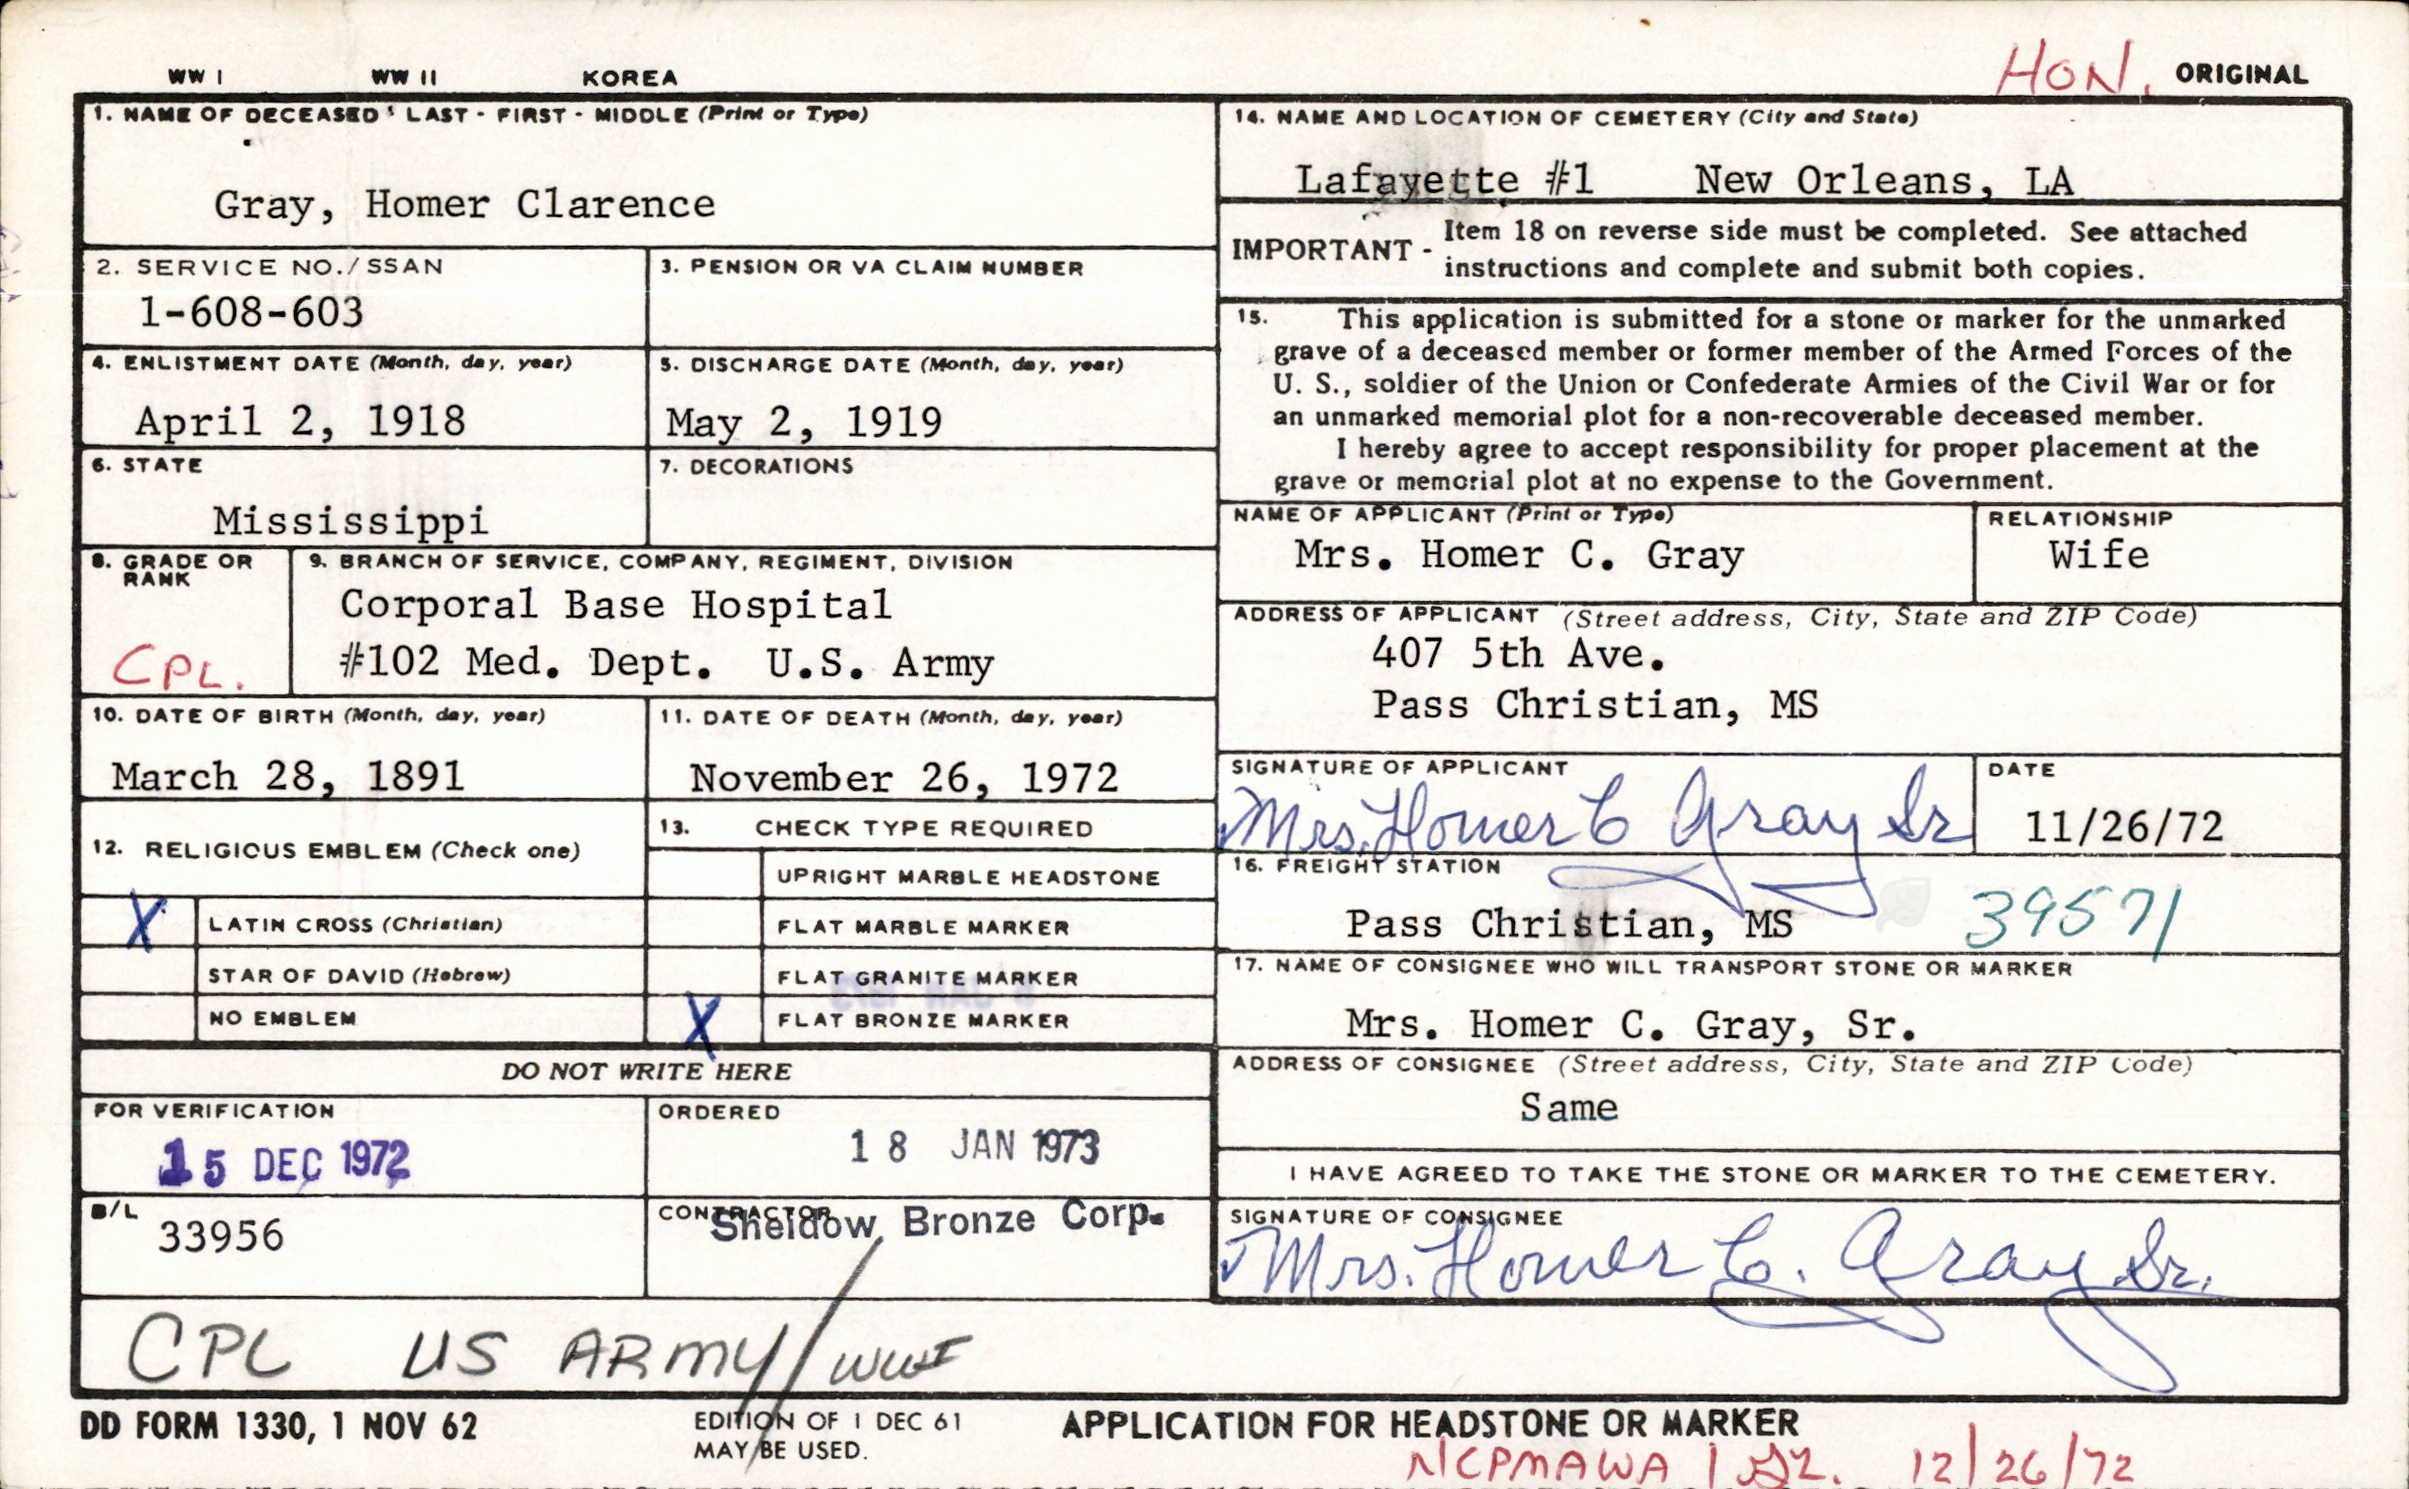 WW I WW II KOREA
HON. ORIGINAL
1. NAME OF DECEASED LAST - FIRST - MIDDLE (Print or Type)
Gray, Homer Clarence
2. SERVICE NO./SSAN
1-608-603
3. PENSION OR VA CLAIM NUMBER
4. ENLISTMENT DATE (Month, day, year)
April 2, 1918
5. DISCHARGE DATE (Month, day, year)
May 2, 1919
6. STATE
Mississippi
7. DECORATIONS
8. GRADE OR
RANK
CPL.
9. BRANCH OF SERVICE, COMPANY, REGIMENT, DIVISION
Corporal Base Hospital
#102 Med. Dept. U.S. Army
10. DATE OF BIRTH (Month, day, year)
March 28, 1891
11. DATE OF DEATH (Month, day, year)
November 26, 1972
12. RELIGIOUS EMBLEM (Check one)
X LATIN CROSS (Christian)
STAR OF DAVID (Hebrew)
NO EMBLEM
13. CHECK TYPE REQUIRED
UPRIGHT MARBLE HEADSTONE
FLAT MARBLE MARKER
FLAT GRANITE MARKER
X FLAT BRONZE MARKER
DO NOT WRITE HERE
FOR VERIFICATION
15 DEC 1972
ORDERED
18 JAN 1973
B/L
33956
CONTRACTOR
Sheldow Bronze Corp.
CPL US ARMY / WWI
14. NAME AND LOCATION OF CEMETERY (City and State)
Lafayette #1 New Orleans, LA
IMPORTANT - Item 18 on reverse side must be completed. See attached
instructions and complete and submit both copies.
15. This application is submitted for a stone or marker for the unmarked
grave of a deceased member or former member of the Armed Forces of the
U. S., soldier of the Union or Confederate Armies of the Civil War or for
an unmarked memorial plot for a non-recoverable deceased member.
I hereby agree to accept responsibility for proper placement at the
grave or memorial plot at no expense to the Government.
NAME OF APPLICANT (Print or Type)
Mrs. Homer C. Gray
RELATIONSHIP
Wife
ADDRESS OF APPLICANT (Street address, City, State and ZIP Code)
407 5th Ave.
Pass Christian, MS
SIGNATURE OF APPLICANT
Mrs. Homer C Gray Sr
DATE
11/26/72
16. FREIGHT STATION
Pass Christian, MS 39571
17. NAME OF CONSIGNEE WHO WILL TRANSPORT STONE OR MARKER
Mrs. Homer C. Gray, Sr.
ADDRESS OF CONSIGNEE (Street address, City, State and ZIP Code)
Same
I HAVE AGREED TO TAKE THE STONE OR MARKER TO THE CEMETERY.
SIGNATURE OF CONSIGNEE
Mrs. Homer C. Gray Sr.
DD FORM 1330, 1 NOV 62
EDITION OF 1 DEC 61
MAY BE USED.
APPLICATION FOR HEADSTONE OR MARKER
NCPMAWA 12/26/72